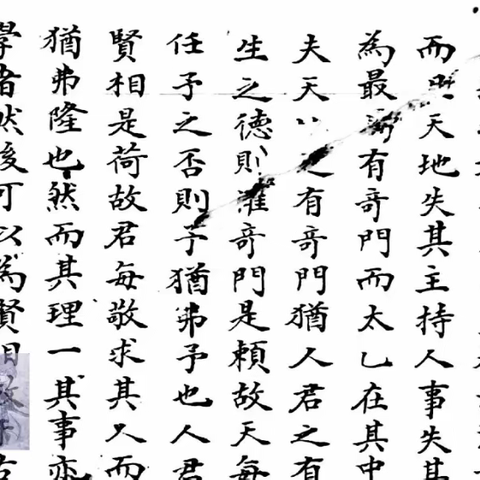 而明天地失其主持人事失其
為最 有奇門而太乙在其中
夫天 之有奇門猶人君之有
生之德則 奇門是賴故天每
任予之否則予猶弗予也人君
賢相是荷故君每敬求其人而
猶弗隆也然而其理一其事亦
學者然後可以為賢相